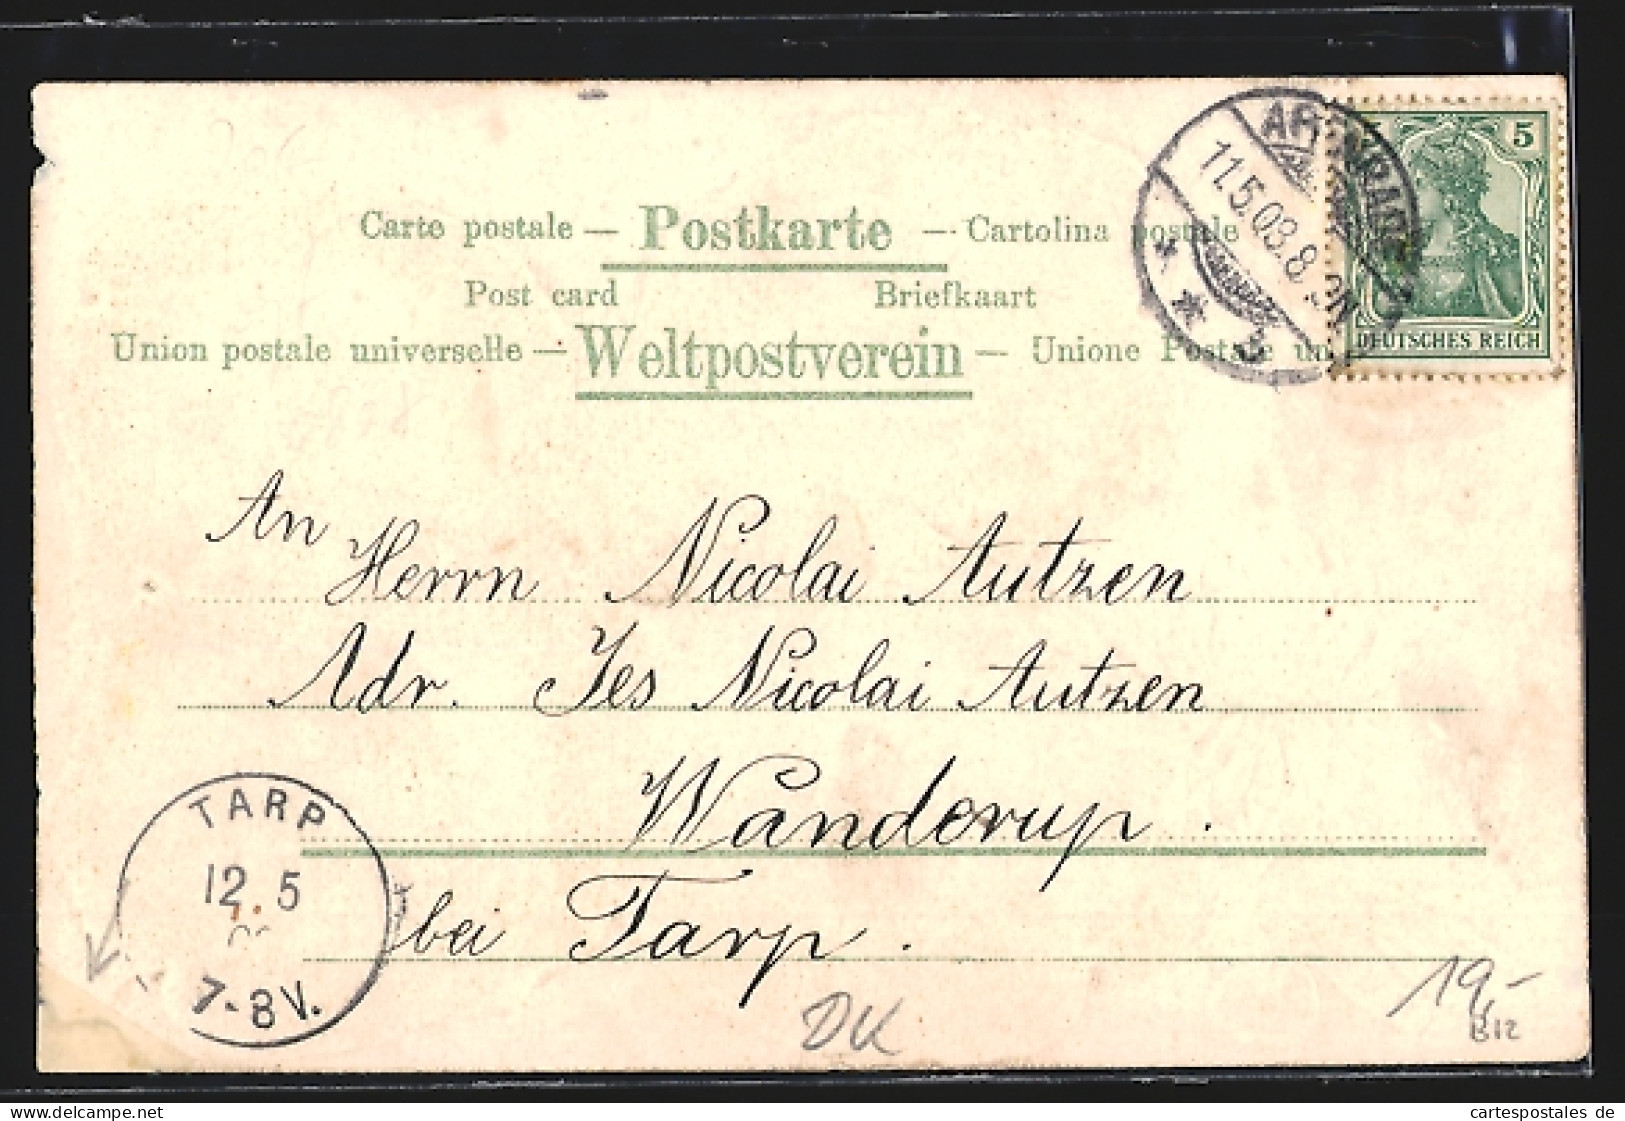 Carte postale — Postkarte — Cartolina postale
Post card Briefkaart
Union postale universelle — Weltpostverein — Unione Postale un
11.5.03.8
5
DEUTSCHES REICH
An
Herrn Nicolai Autzen
Adr. Jes Nicolai Autzen
Wanderup.
bei Tarp.
TARP
12.5
7-8V.
DK
19,-
B12
cartespostales de